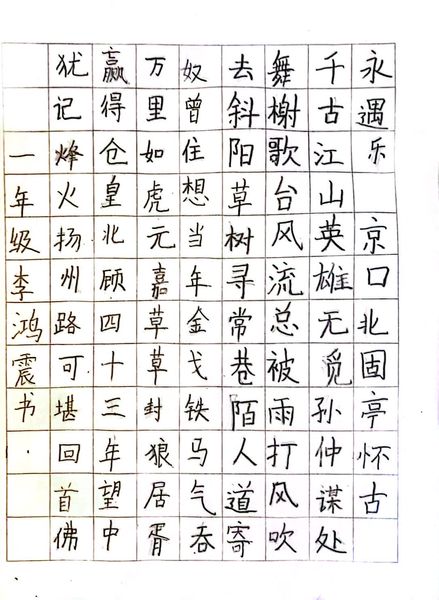 永遇乐 京口北固亭怀古
千古江山英雄无觅孙仲谋处
舞榭歌台风流总被雨打风吹
去斜阳草树寻常巷陌人道寄
奴曾住想当年金戈铁马气吞
万里如虎元嘉草草封狼居胥
赢得仓皇北顾四十三年望中
犹记烽火扬州路可堪回首佛
一年级李鸿震书.